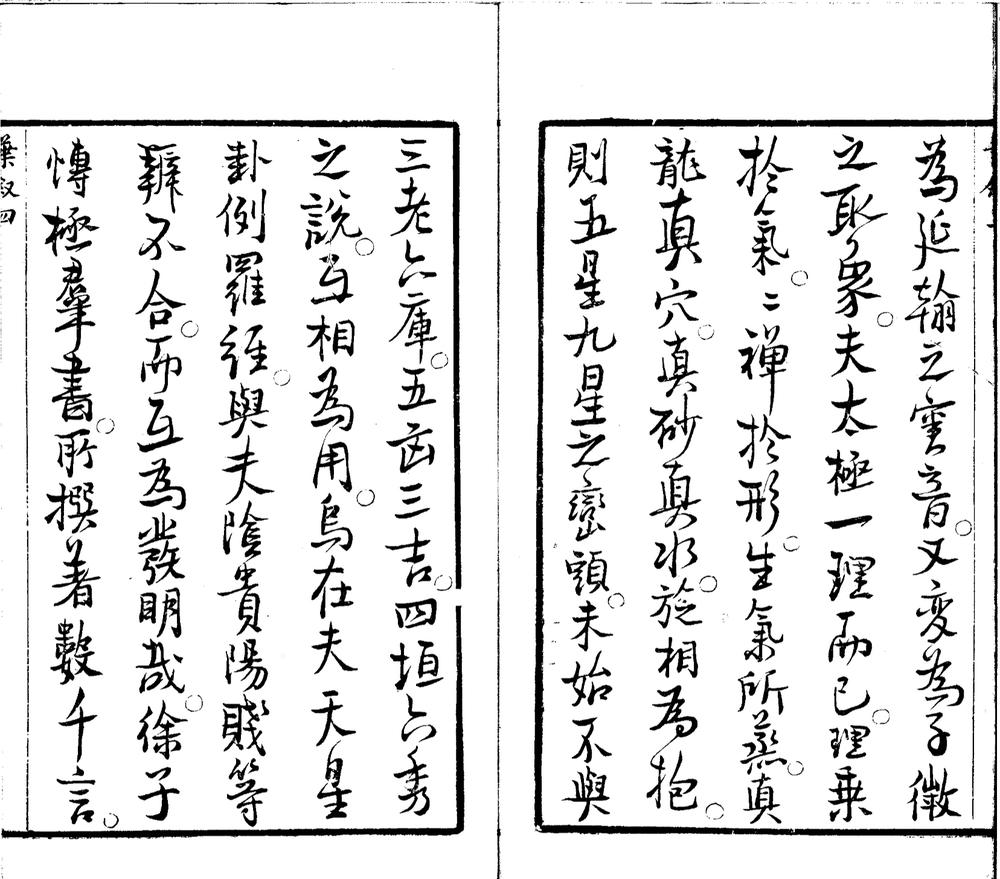 為延翰之䨥音。又変為子徵
之取象。夫太極一理而已。理乗
於氣。〻禪於形。生氣所蒸。真
龍真穴。真砂真水。旋相為抱。
則五星九星之巒頭。未始不與
三老六庫。五凶三吉。四垣六秀
之說。互相為用。烏在夫天星
卦例羅経。與夫陰貴陽賤等
辯不合。而互為發明哉。徐子
慱極羣書。所撰著數千言。
葉叙四